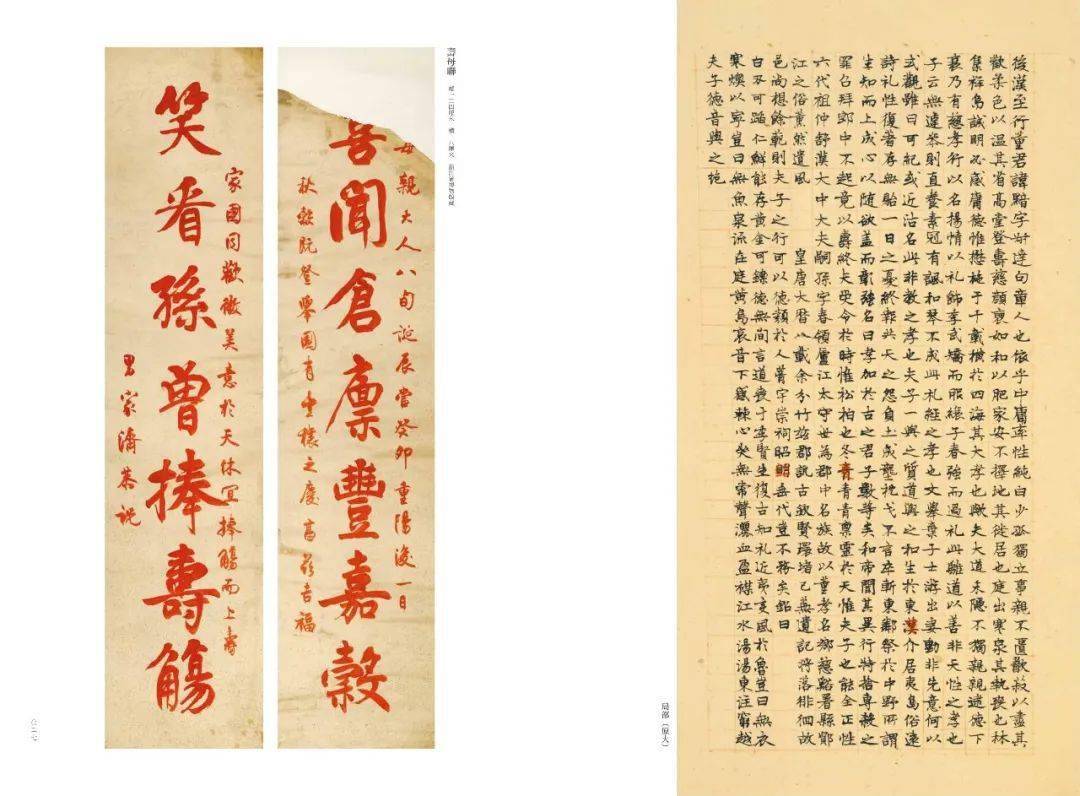 後漢至行董君諱黯字叔達句章人也依乎中庸率性純白少孤獨立事親不匱歠菽以盡其
歡柔色以溫其省高堂登壽慈顏裏如和以肥家安不擇地其徙居也庭出寒泉其執喪也林
集祥烏誠明必感庸德惟懋施于千載橫於四海其大孝也歟夫大道未隱不獨親親達德下
衰乃有慈孝行以名揚情以礼飾李武矯而眠線子春強而過礼此離道以善非天性之孝也
子云無違參則直養素冠有諷和琴不成此礼經之孝也文舉棄子士游出妻動非先意何以
式觀雖曰可紀或近沽名此非教之孝也夫子一與之質道與之和生於東漢介居夷島俗遠
詩礼性復著存無貽一日之憂終報共天之怨負土成壟枕戈不言卒斬東鄰祭於中野所謂
生知而上成心以隨欲蓋而彰強名曰孝加於古之君子數等矣和帝聞其異行特捨專殺之
罪召拜郎中不起竟以壽終夫受令於時惟松柏也冬青青稟靈於天惟夫子也能全正性
六代祖仲舒漢大中大夫嗣孫字春領廬江太守世為郡中名族故以董孝名鄉慈谿署縣鄮
江之俗薰然遺風 皇唐大曆八載余分竹茲郡訊古欽賢環堵已蕪遺記將落徘徊故
邑尚想餘範則夫子之行可以德類於人宇崇祠昭明吾代豈不務矣銘曰
白刃可蹈仁鮮能存黃金可鑠德無間言道喪于季賢生復古知礼近夷風於魯豈曰無衣
寒燠以寧豈曰無魚泉流在庭黃鳥哀音下感棘心哭無常聲灑血盈襟江水湯湯東注窮越
夫子德音與之終
局部（原大）
壽母聯
母親大人八旬誕辰當癸卯重陽後一日
喜聞倉廩豐嘉穀
秋穀既登舉國有之慶喜茲吉福
家國同歡徵美意於天休宜捧觴而上壽
笑看孫曾捧壽觴
男家濟恭祝
〇二七